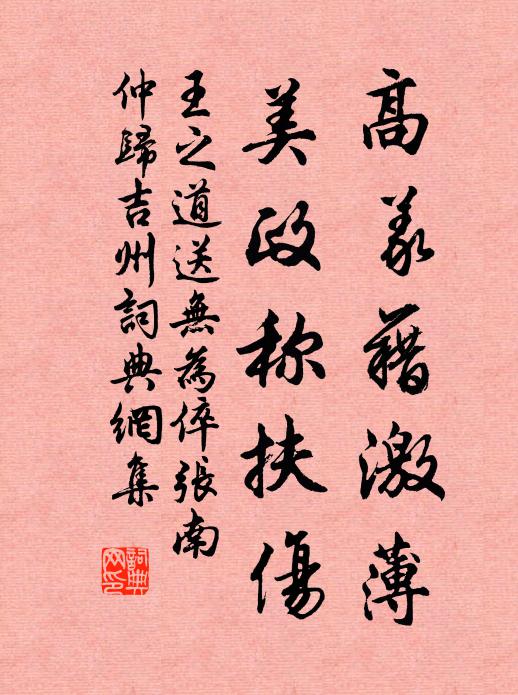 高義藉激薄
美政称扶傷
王之道送無為倅張南
仲歸吉州詞典網集
詞典网印